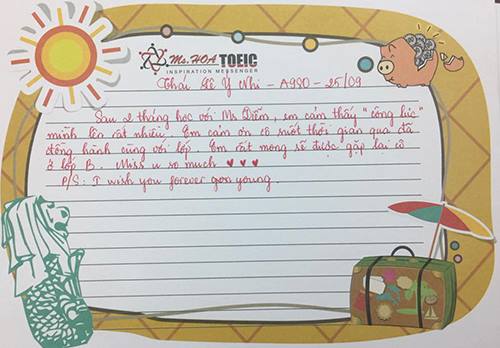 Ms.HOA TOEIC
INSPIRATION MESSENGER
Thái Lê Ý Nhi - A980 - 25/09
Sau 2 tháng học với Ms Diễm, em cảm thấy "công lực"
mình lên rất nhiều. Em cảm ơn cô suốt thời gian qua đã
đồng hành cùng với lớp. Em rất mong sẽ được gặp lại cô
ở lớp B. Miss u so much ♥ ♥ ♥
P/S: I wish you forever young.